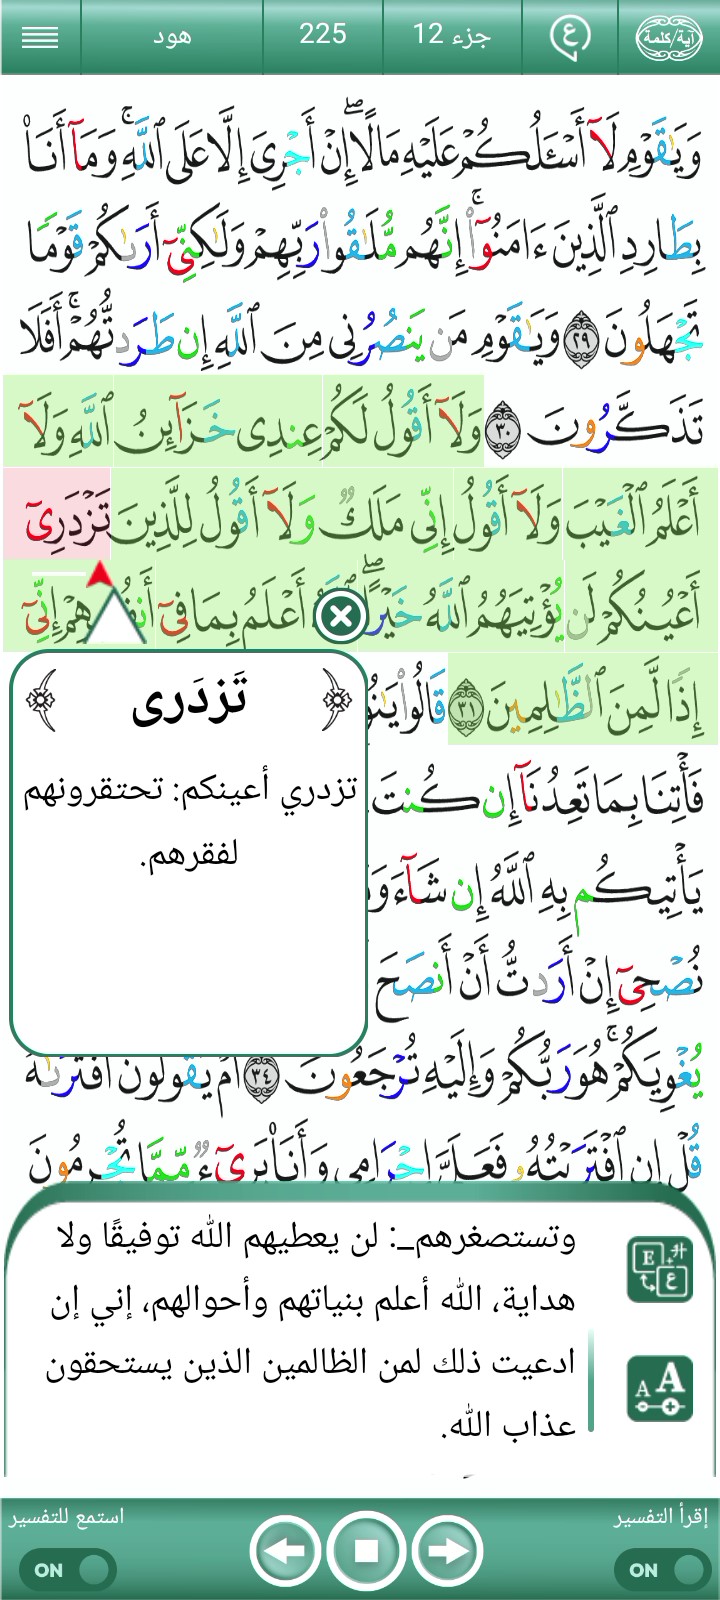 آية/كلمة
ع
جزء 12
225
هود
وَيَـٰقَوْمِ لَآ أَسْـَٔلُكُمْ عَلَيْهِ مَالًا ۖ إِنْ أَجْرِىَ إِلَّا عَلَى ٱللَّهِ ۚ وَمَآ أَنَا۠
بِطَارِدِ ٱلَّذِينَ ءَامَنُوٓا۟ ۚ إِنَّهُم مُّلَـٰقُوا۟ رَبِّهِمْ وَلَـٰكِنِّىٓ أَرَىٰكُمْ قَوْمًا
تَجْهَلُونَ ٢٩ وَيَـٰقَوْمِ مَن يَنصُرُنِى مِنَ ٱللَّهِ إِن طَرَدتُّهُمْ ۚ أَفَلَا
تَذَكَّرُونَ ٣٠ وَلَآ أَقُولُ لَكُمْ عِندِى خَزَآئِنُ ٱللَّهِ وَلَآ
أَعْلَمُ ٱلْغَيْبَ وَلَآ أَقُولُ إِنِّى مَلَكٌ وَلَآ أَقُولُ لِلَّذِينَ تَزْدَرِىٓ
أَعْيُنُكُمْ لَن يُؤْتِيَهُمُ ٱللَّهُ خَيْرًا ۖ أَعْلَمُ بِمَا فِىٓ إِنِّىٓ
إِذًا لَّمِنَ ٱلظَّـٰلِمِينَ ٣١ قَالُوا۟
فَأْتِنَا بِمَا تَعِدُنَآ إِن كُنتَ
يَأْتِيكُم بِهِ ٱللَّهُ إِن شَآءَ
نُصْحِىٓ إِنْ أَرَدتُّ أَنْ أَنصَحَ
يُغْوِيَكُمْ ۚ هُوَ رَبُّكُمْ وَإِلَيْهِ تُرْجَعُونَ ٣٤ أَمْ يَقُولُونَ ٱفْتَرَىٰهُ
قُلْ إِنِ ٱفْتَرَيْتُهُۥ فَعَلَىَّ إِجْرَامِى وَأَنَا۠ بَرِىٓءٌ مِّمَّا تُجْرِمُونَ
تَزدَرى
تزدري أعينكم: تحتقرونهم
لفقرهم.
وتستصغرهم_: لن يعطيهم الله توفيقًا ولا
هداية، الله أعلم بنياتهم وأحوالهم، إني إن
ادعيت ذلك لمن الظالمين الذين يستحقون
عذاب الله.
إقرأ التفسير
استمع للتفسير
ON
ON